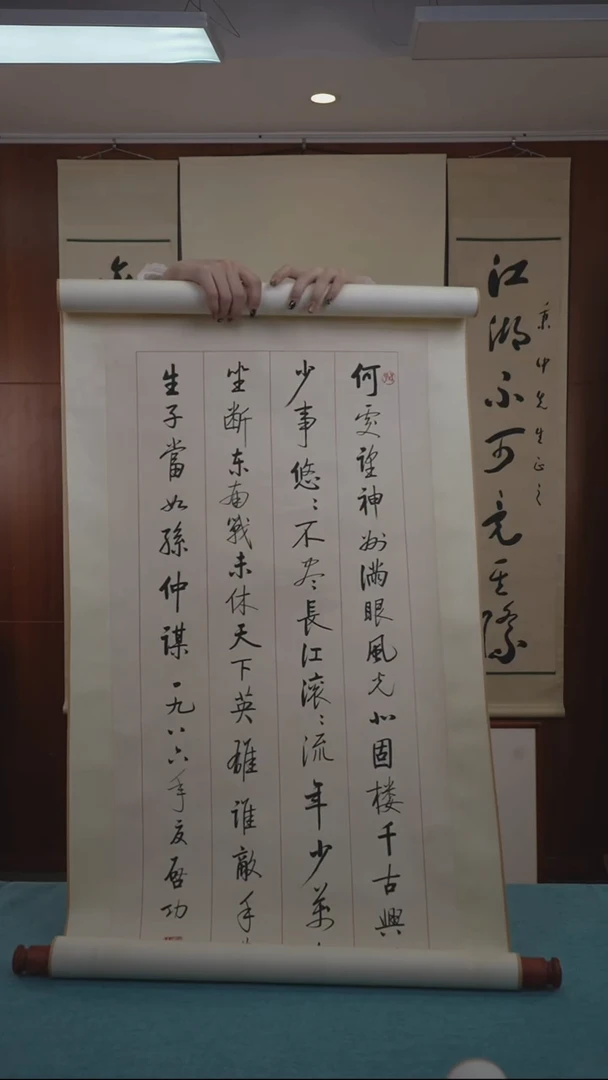 何處望神州满眼風光北固楼千古興
少事悠々不尽長江滚々流年少萬
坐断东南戰未休天下英雄誰敵手
生子當如孫仲謀一九八六年夏啓功
秉仲先生正之
江湖不可竟其際